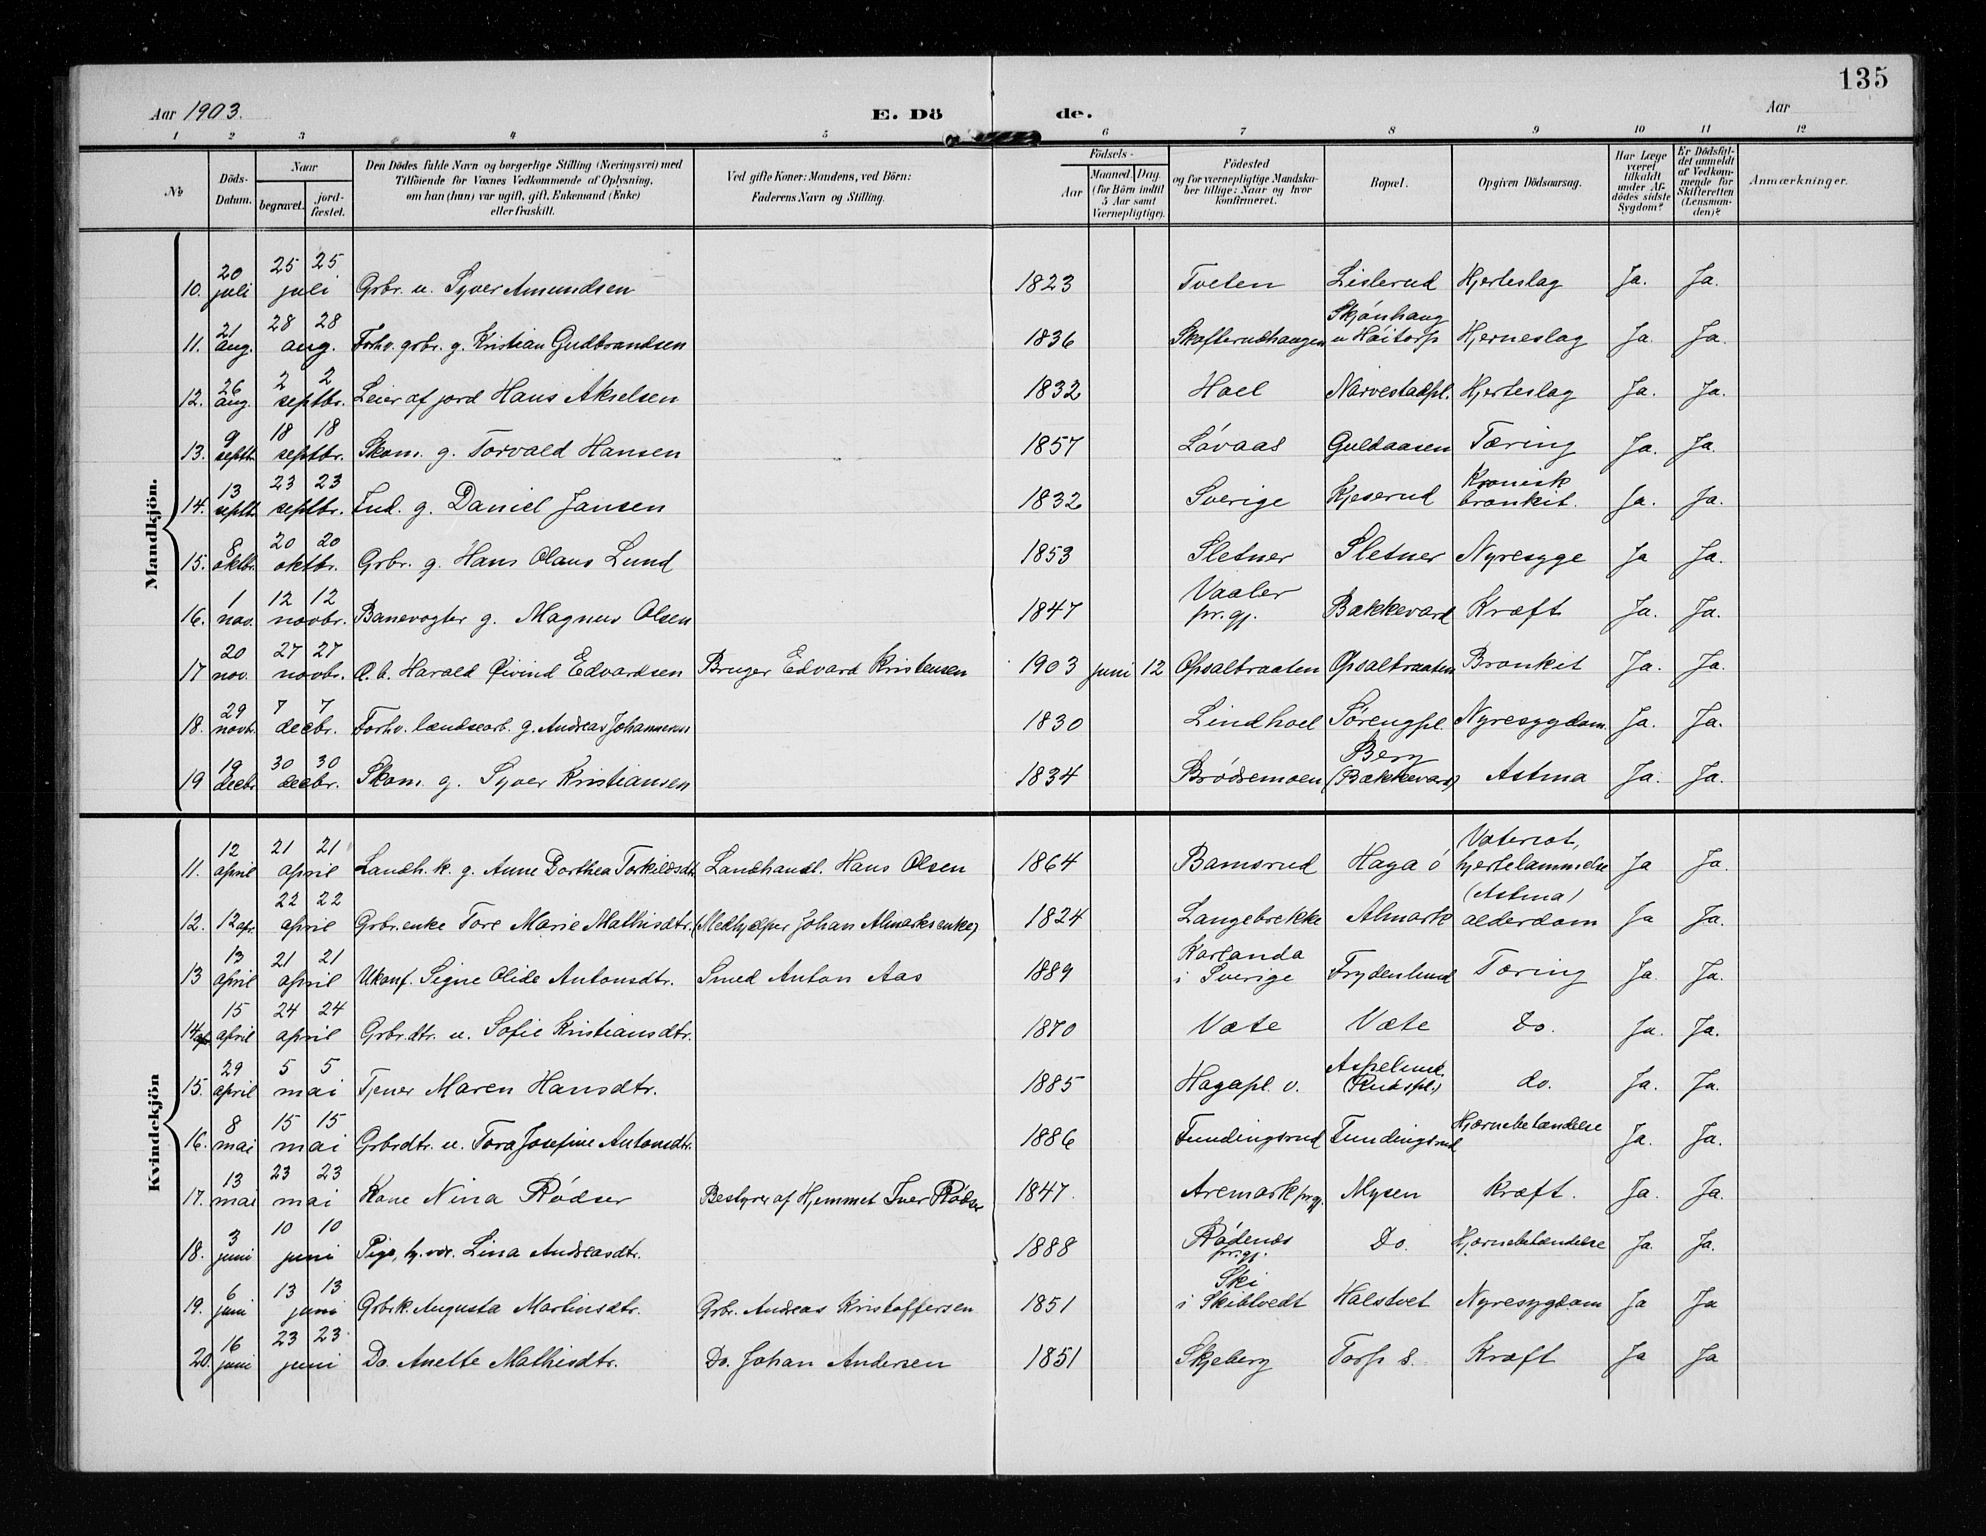 135
Aar 1903. E. Dö de. Aar
1 2 3 4 5 6 7 8 9 10 11 12
No
Döds-Datum.
Naar
begravet. jordfæstet.
Den Dödes fulde Navn og borgerlige Stilling (Næringsvei) med
Tilföiende for Voxnes Vedkommende af Oplysning,
om han (hun) var ugift, gift, Enkemand (Enke)
eller fraskilt.
Ved gifte Koner: Mandens, ved Börn:
Faderens Navn og Stilling.
Födsels-
Aar
Maaned. Dag.
(for Börn indtil
5 Aar samt
Værnepligtige).
Födested
og for værnepligtige Mandskaber tillige: Naar og hvor konfirmeret.
Bopæl.
Opgiven Dödsaarsag.
Har Læge været tilkaldt under Afdödes sidste Sygdom?
Er Dödsfaldet anmeldt af Vedkommende for Skifteretten (Lensmanden)?
Anmærkninger.
Mandkjön.
10. 20 juli 25 25 juli Grbr. u. Syver Amundsen 1823 Tveten Lislerud Hjerteslag Ja. Ja.
11. 21 aug. 28 28 aug. Forhv. grbr. g. Kristian Gudbrandsen 1836 Skofterudhaugen Skjønhaug u Høitorp Hjerneslag Ja. Ja.
12. 26 aug. 2 2 septbr. Leier af jord Hans Akselsen 1832 Hoel Narvestadpl. Hjerteslag Ja. Ja.
13. 9 septb. 18 18 septbr. Skom. g. Torvald Hansen 1857 Løvaas Guldaasen Tæring Ja. Ja.
14. 13 septb. 23 23 septbr. Ind. g. Daniel Jansen 1832 Sverige Kjeserud Kronisk bronkit. Ja. Ja.
15. 8 oktbr. 20 20 oktbr. Grbr. g. Hans Olaus Lund 1853 Sletner Sletner Nyresyge Ja Ja.
16. 1 nov. 12 12 novbr. Banevogter g. Magnus Olsen 1847 Vaaler pr.gj. Bakkevard Kræft Ja. Ja.
17 20 nov. 27 27 novbr. Æ. b. Harald Øivind Edvardsen Bruger Edvard Kristensen 1903 juni 12 Opsalbraaten Opsalbraaten Bronkit Ja. Ja.
18. 29 novb. 7 7 decbr. Forhv. landsearb. g. Andreas Johannesen 1830 Lindhoel Sørengpl. Nyresygdom Ja. Ja.
19 19 decbr. 30 30 decbr. Skom. g. Syver Kristiansen 1834 Brødsemoen Berg (Bakkevard) Astma Ja. Ja.
Kvindekjön
11. 12 april 21 21 april Landh. k. g. Anne Dorthea Torkildsdtr. Landhandl. Hans Olsen 1864 Bamsrud Haga ö Vatersot, hjertelammelse Ja Ja.
12. 12 apr. 22 22 april Grbr.enke Tore Marie Mathisdtr. (Medhjælper Johan Almarks enke) 1824 Langebrekke Almark (Astma) alderdom Ja Ja.
13 13 april 21 21 april Ukonf. Signe Olide Antonsdtr. Smed Anton Aas 1889 Karlanda i Sverige Frydenlund Tæring Ja. Ja.
14 15 april 24 24 april Grbr.dtr. u. Sofie Kristiansdtr. 1870 Væte Væte Do. Ja. Ja.
15. 29 april 5 5 mai Tjener Maren Hansdtr. 1885 Hagapl. v. Aspelund (Rudspl.) do. Ja. Ja.
16. 8 mai 15 15 mai Grbrdtr. u. Tora Josefine Antonsdtr. 1886 Fundingsrud Fundingsrud Hjærnebetændelse Ja. Ja.
17. 13 mai 23 23 mai Kone Nina Rødser Bestyrer af Hjemmet Iver Rødser 1847. Aremark pr.gj. Mysen Kræft. Ja. Ja.
18. 3 juni 10 10 juni Pige, hj. vær. Lina Andreasdtr. 1888 Rødenæs pr.gj. Do. Hjærnebetændelse Ja. Ja.
19. 6 juni 13 13 juni Grbrk. Augusta Martinsdtr. Grbr. Andreas Kristoffersen 1851 Ski i Skibtvedt Halstvet Nyresygdom Ja Ja
20. 16 juni 23 23 juni Do. Anette Mathisdtr. Do. Johan Andersen 1851 Skjeberg Torp s. Kræft Ja Ja